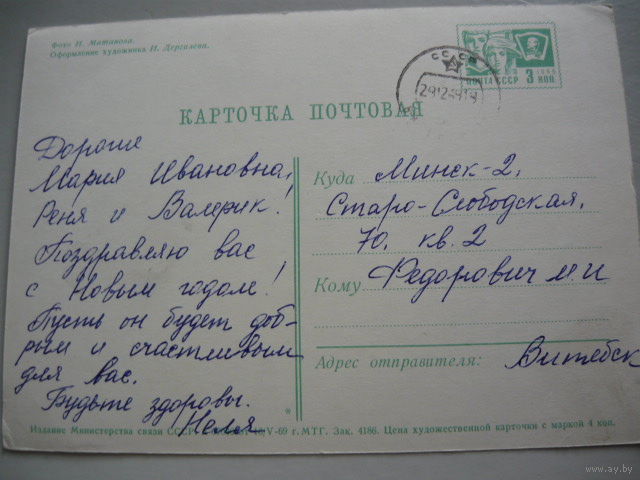 Фото Н. Матанова.
Оформление художника И. Дергалева.
СССР
29.12.69
ПОЧТА СССР
1966
3 КОП
КАРТОЧКА ПОЧТОВАЯ
Дорогие
Мария Ивановна,
Реня и Валерик!
Поздравляю вас
с Новым годом!
Пусть он будет доб-
рым и счастливым
для вас.
Будьте здоровы.
Неля
Куда Минск-2,
Старо-Слободская,
70, кв. 2
Кому Федорович М И
Адрес отправителя: Витебск
Издание Министерства связи СССР V-69 г. МТГ. Зак. 4186. Цена художественной карточки с маркой 4 коп.
www.ay.by